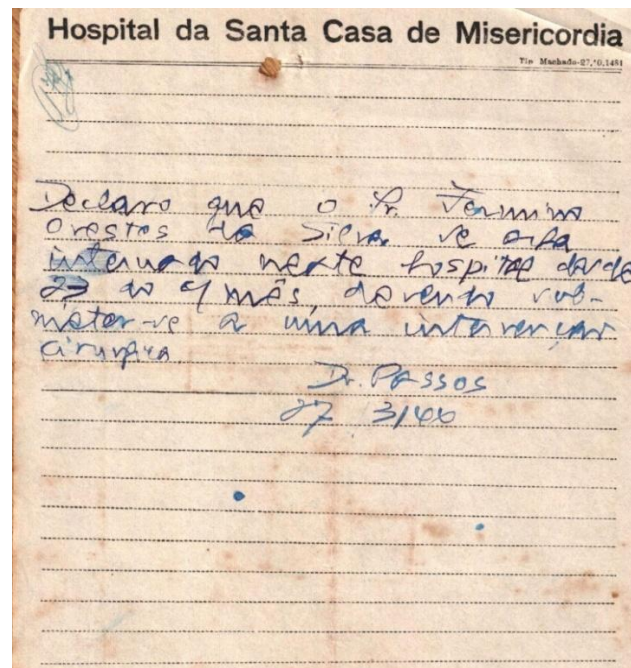 Hospital da Santa Casa de Misericordia
Tip Machado-27,
Declaro que o Sr. Firmino
Orestes da Silva se acha
internado neste hospital desde
23 do mês, devendo sub-
meter-se a uma intervenção
cirurgica
Dr. Passos
27 3/40